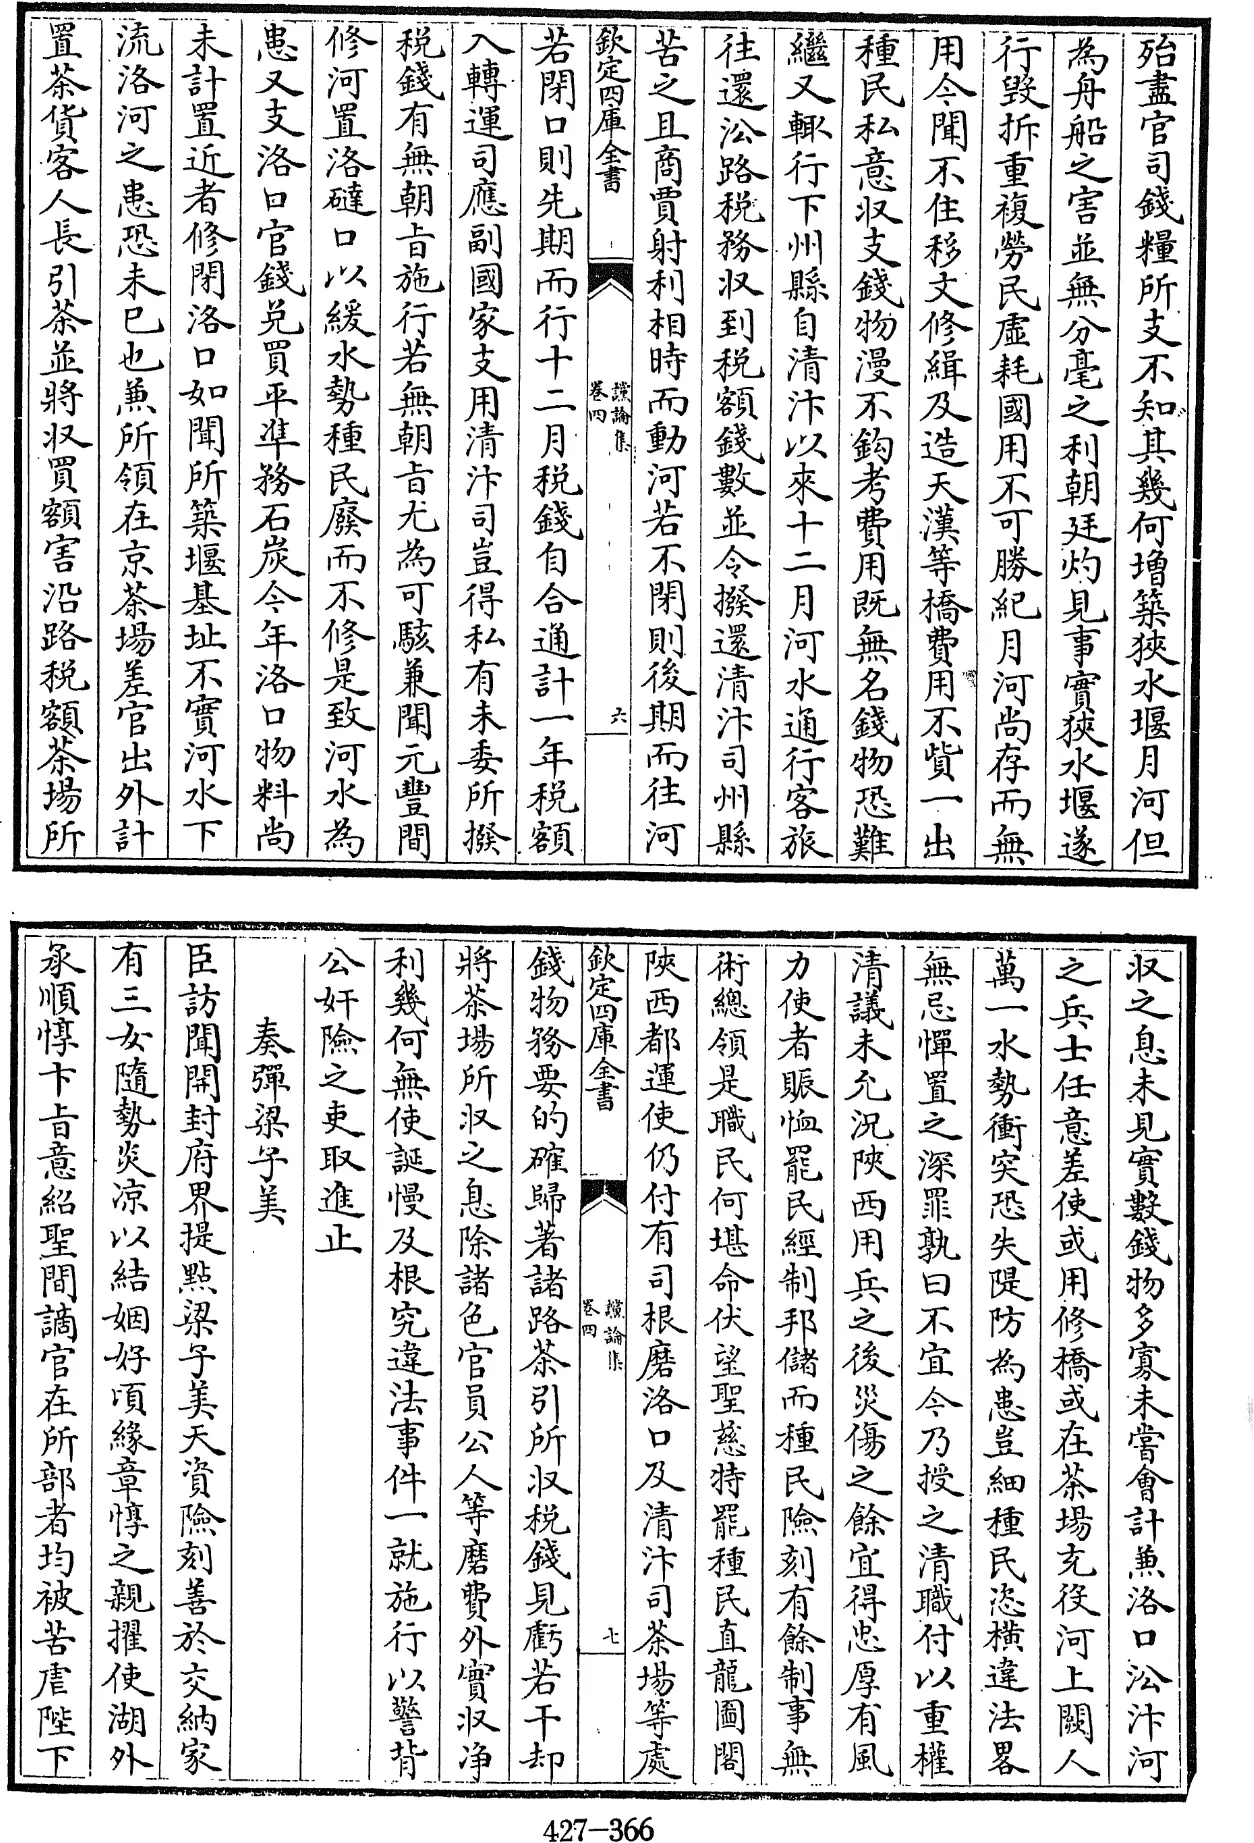 殆盡官司錢糧所支不知其幾何增築狹水堰月河但
為舟船之害並無分毫之利朝廷灼見事實狹水堰遂
行毀拆重複勞民虛耗國用不可勝紀月河尚存而無
用今聞不住移文修緝及造天漢等橋費用不貲一出
種民私意收支錢物漫不鈎考費用既無名錢物恐難
繼又輒行下州縣自清汴以來十二月河水通行客旅
往還㳂路稅務收到稅額錢數並令撥還清汴司州縣
苦之且商賈射利相時而動河若不閉則後期而往河
欽定四庫全書
讜論集
卷四
六
若閉口則先期而行十二月稅錢自合通計一年稅額
入轉運司應副國家支用清汴司豈得私有未委所撥
稅錢有無朝旨施行若無朝旨尤為可駭兼聞元豐間
修河置洛磏口以緩水勢種民廢而不修是致河水為
患又支洛口官錢兌買平準務石炭今年洛口物料尚
未計置近者修閉洛口如聞所築堰基址不實河水下
流洛河之患恐未已也兼所領在京茶場差官出外計
置茶貨客人長引茶並將收買額害沿路稅額茶場所
收之息未見實數錢物多寡未嘗會計兼洛口㳂汴河
之兵士任意差使或用修橋或在茶場充役河上闕人
萬一水勢衝突恐失隄防為患豈細種民恣橫違法畧
無忌憚置之深罪孰曰不宜今乃授之清職付以重權
清議未允況陝西用兵之後災傷之餘宜得忠厚有風
力使者賑恤罷民經制邦儲而種民險刻有餘制事無
術總領是職民何堪命伏望聖慈特罷種民直龍圖閣
陝西都運使仍付有司根磨洛口及清汴司茶場等處
欽定四庫全書
讜論集
卷四
七
錢物務要的確歸著諸路茶引所收稅錢見虧若干却
將茶場所收之息除諸色官員公人等磨費外實收净
利幾何無使誕慢及根究違法事件一就施行以警背
公奸險之吏取進止
奏彈梁子美
臣訪聞開封府界提點梁子美天資險刻善於交納家
有三女隨勢炎凉以結姻好頃緣章惇之親擢使湖外
承順惇卞旨意紹聖間謫官在所部者均被苦虐陛下
427-366